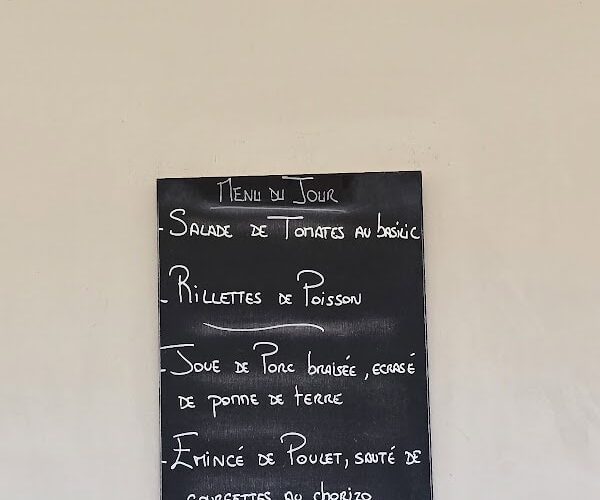 Menu du Jour
- Salade de Tomates au basilic
- Rillettes de Poisson
- Joue de Porc braisée, ecrasé
de pomme de terre
- Emincé de Poulet, sauté de
courgettes au chorizo